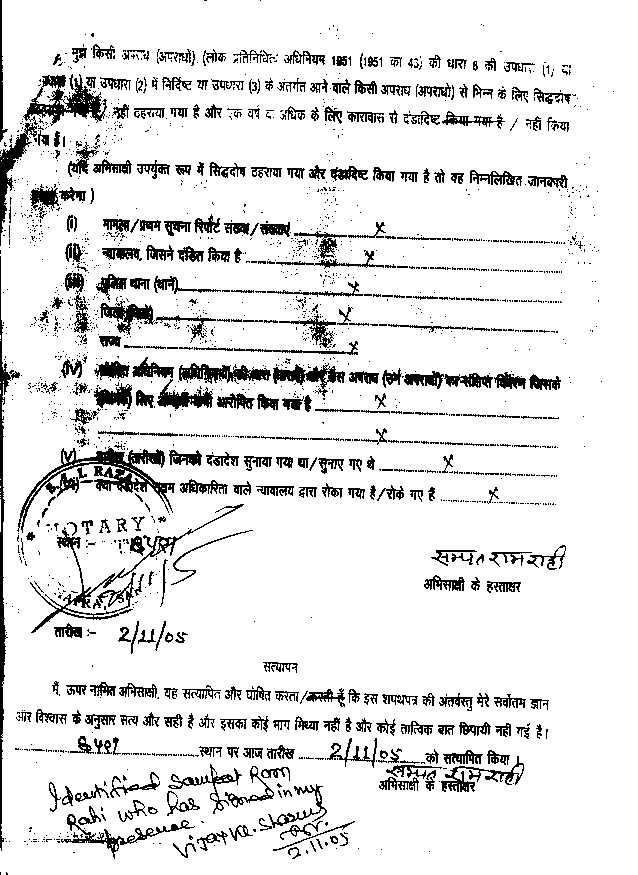 मुझे किसी अपराध (अपराधों) (लोक प्रतिनिधित्व अधिनियम 1951 (1951 का 43) की धारा 8 की उपधारा (1) या
(1) या उपधारा (2) में निर्दिष्ट या उपधारा (3) के अंतर्गत आने वाले किसी अपराध (अपराधों) से भिन्न के लिए सिद्धदोष
नहीं ठहराया गया है और एक वर्ष या अधिक के लिए कारावास से दंडादिष्ट किया गया है / नहीं किया
गया है।
(यदि अभिसाक्षी उपर्युक्त रूप में सिद्धदोष ठहराया गया और दंडादिष्ट किया गया है तो वह निम्नलिखित जानकारी
करेगा )
(i) मामला/प्रथम सूचना रिपोर्ट संख्या/संख्याएं x
(ii) न्यायालय, जिसने दंडित किया है x
(iii) पुलिस थाना (थाने) x
जिला x
राज्य x
(iv) अधिनियम की धारा और उस अपराध (उन अपराधों) का संक्षिप्त विवरण जिसके
लिए आरोपित किया गया है x
x
(v) (तारीखें) जिनको दंडादेश सुनाया गया था/सुनाए गए थे x
क्या दंडादेश सक्षम अधिकारिता वाले न्यायालय द्वारा रोका गया है/रोके गए हैं x
RAZA
NOTARY
स्थान :-
सम्पत राम राही
अभिसाक्षी के हस्ताक्षर
तारीख :- 2/11/05
सत्यापन
मैं, ऊपर नामित अभिसाक्षी, यह सत्यापित और घोषित करता/करती हूँ कि इस शपथपत्र की अंतर्वस्तु मेरे सर्वोतम ज्ञान
और विश्वास के अनुसार सत्य और सही है और इसका कोई भाग मिथ्या नहीं है और कोई तात्विक बात छिपायी नहीं गई है।
स्थान पर आज तारीख 2/11/05 को सत्यापित किया।
सम्पत राम राही
अभिसाक्षी के हस्ताक्षर
Identified Sampat Ram
Rahi who has Signed in my
presence.
Vijay Kr. Sharma
2.11.05